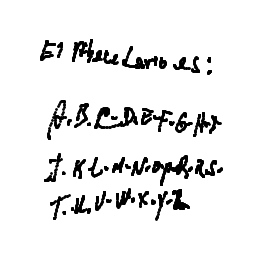 El Abecedario es:
A.B.C.D.E.F.G.H.I
J.K.L.M.N.O.P.Q.R.S.
T.U.V.W.X.Y.Z